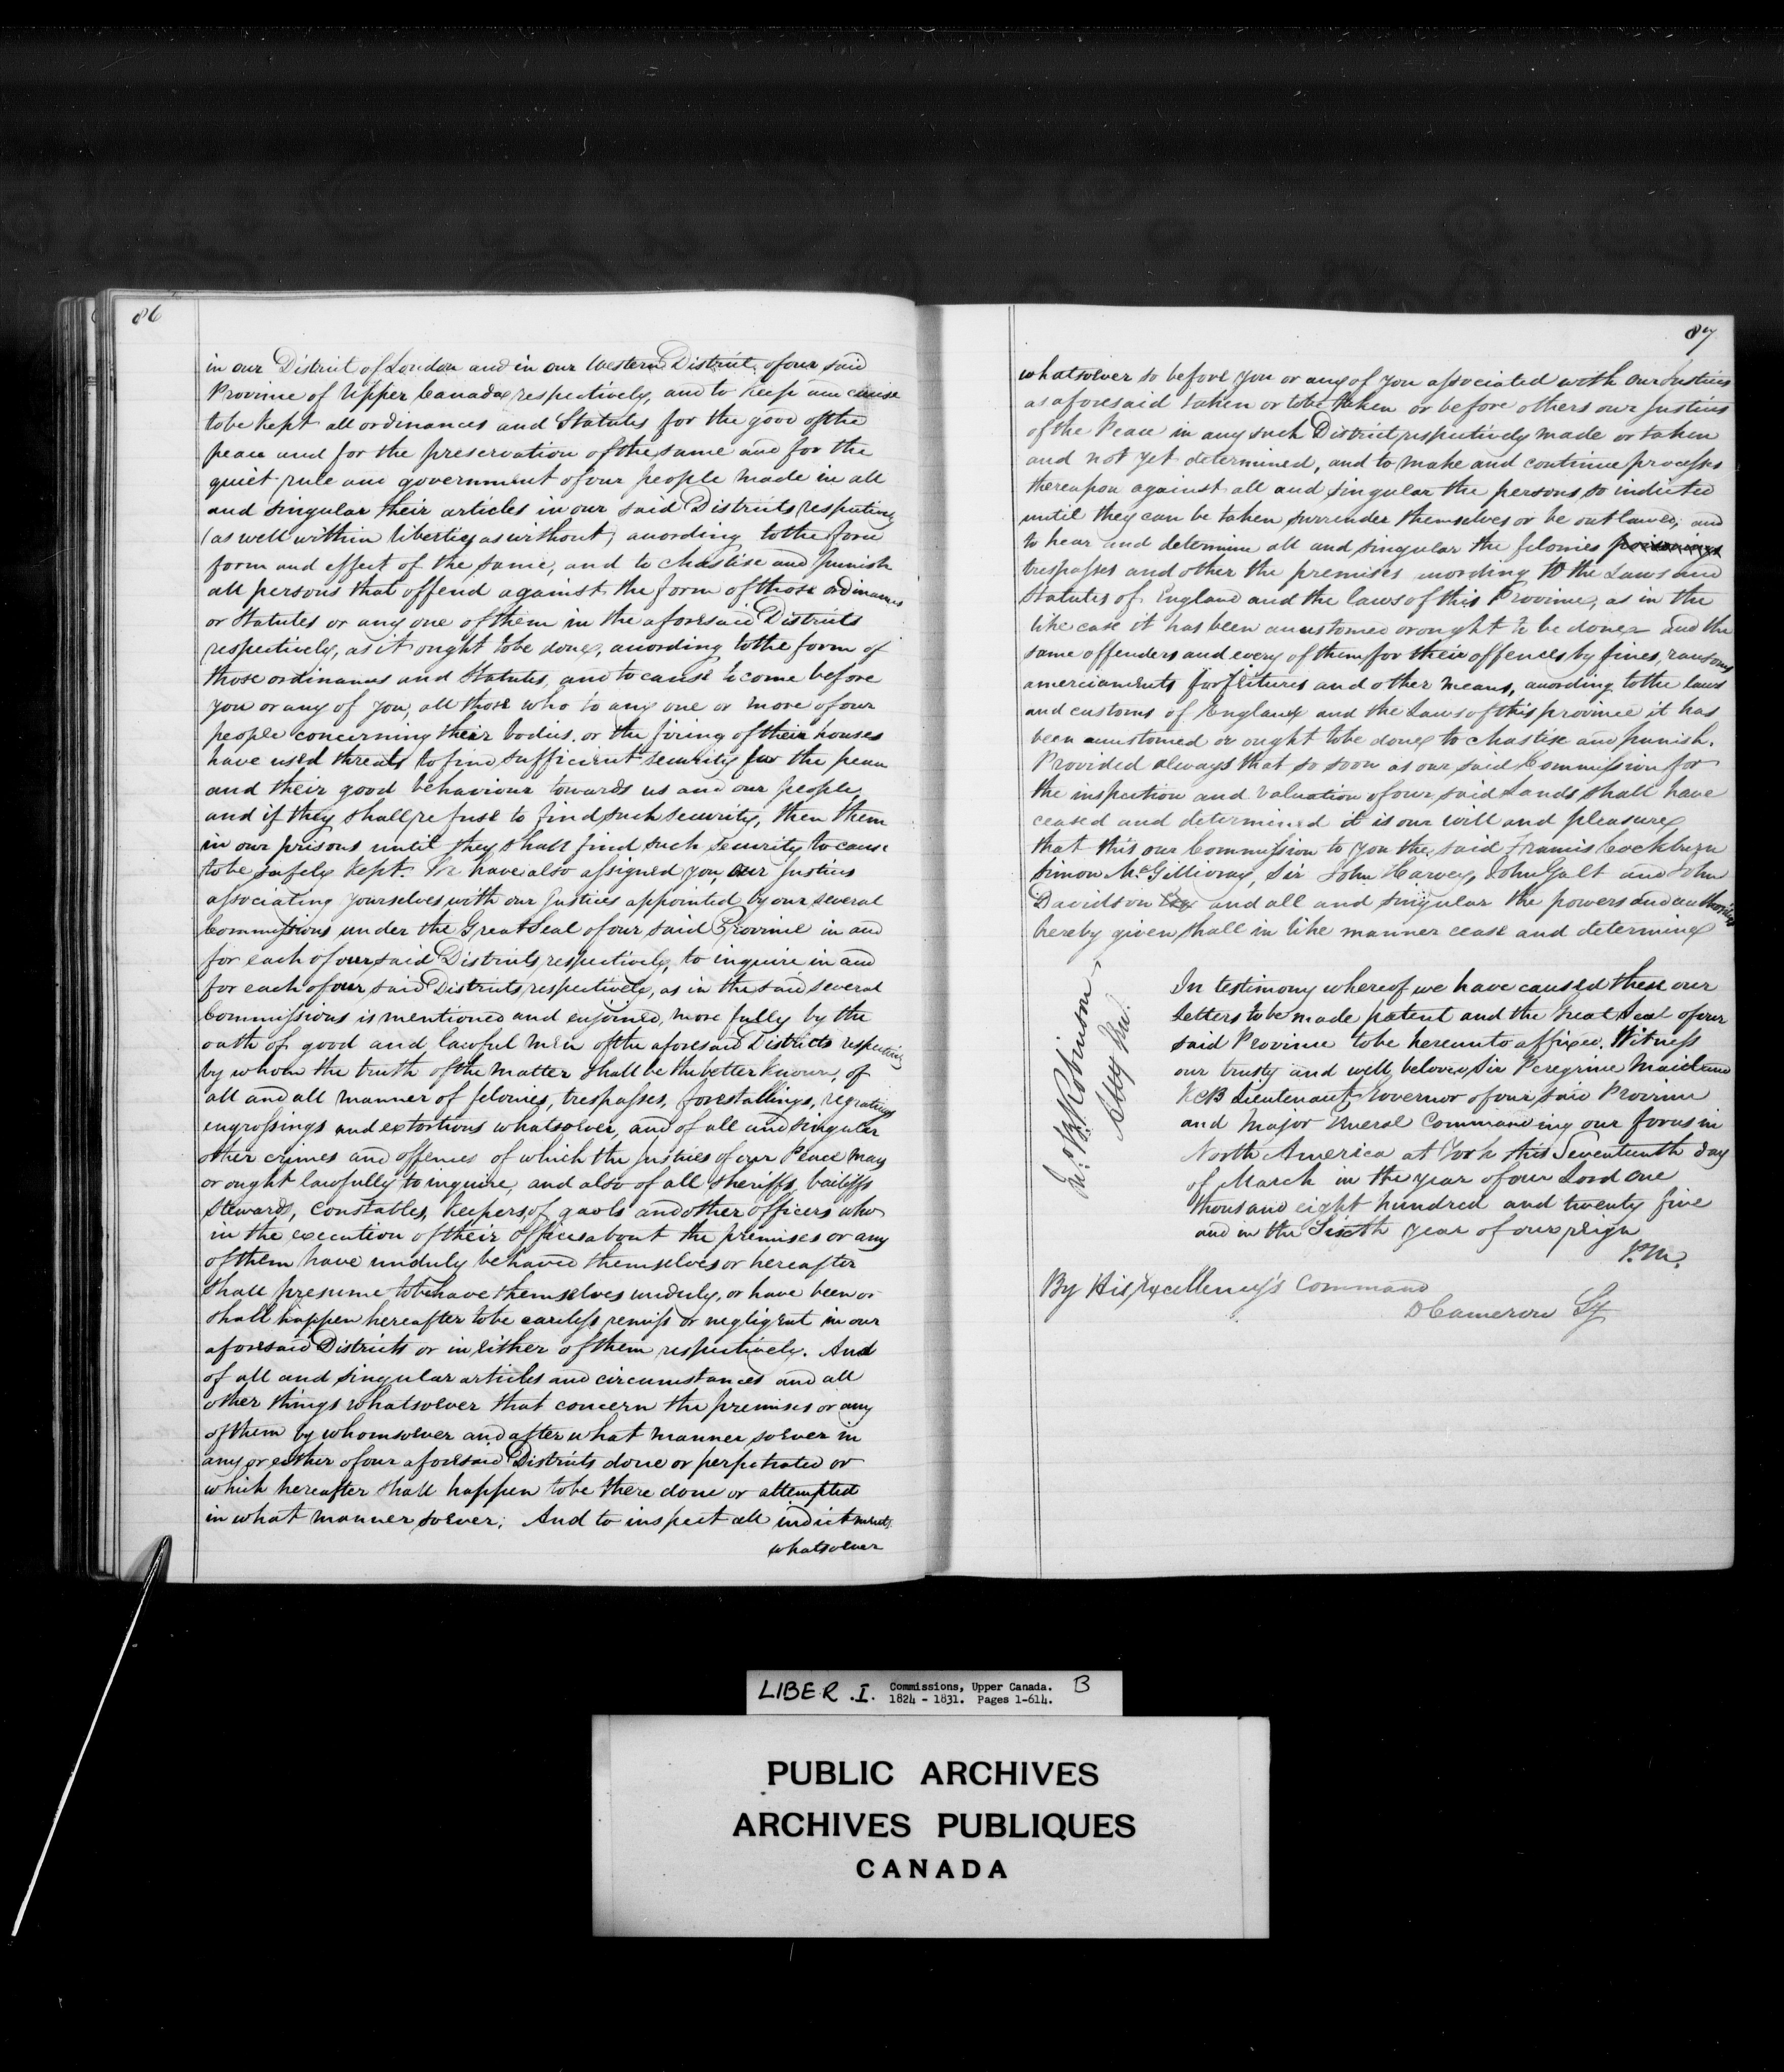 86
in our District of London and in our Western District of our said
Province of Upper Canada respectively, and to keep and cause
to be kept all ordinances and Statutes for the good of the
peace and for the preservation of the same and for the
quiet rule and government of our people made in all
and singular their articles in our said Districts respectively
(as well within liberties as without) according to the force
form and effect of the same, and to chastise and punish
all persons that offend against the form of those ordinances
or Statutes or any one of them in the aforesaid Districts
respectively, as it ought to be done, according to the form of
those ordinances and Statutes, and to cause to come before
you or any of you, all those who to any one or more of our
people concerning their bodies or the firing of their houses
have used threats to find sufficient security for the peace
and their good behaviour towards us and our people
and if they shall refuse to find such security, then them
in our prisons until they shall find such security to cause
to be safely kept. We have also assigned you, our Justices
associating yourselves with our Justices appointed by our several
Commissions under the Great Seal of our said Province in and
for each of our said Districts respectively, to inquire in and
for each of our said Districts respectively, as in the said several
Commissions is mentioned and enjoined, more fully by the
oath of good and lawful men of the aforesaid Districts respectively
by whom the truth of the matter shall be the better known, of
all and all manner of felonies, trespasses, forestallings, regratings
engrossings and extortions whatsoever, and of all and singular
other crimes and offences of which the Justices of our Peace may
or ought lawfully to inquire, and also of all Sheriffs, bailiffs
Stewards, Constables, Keepers of gaols and other officers who
in the execution of their offices about the premises or any
of them have unduly behaved themselves or hereafter
shall presume to behave themselves unduly, or have been or
shall happen hereafter to be careless remiss or negligent in our
aforesaid Districts or in either of them respectively. And
of all and singular articles and circumstances and all
other things whatsoever that concern the premises or any
of them by whomsoever and after what manner soever in
any or either of our aforesaid Districts done or perpetrated or
which hereafter shall happen to be there done or attempted
in what manner soever; And to inspect all indictments
whatsoever
87
whatsoever so before you or any of you associated with our Justices
as aforesaid taken or to be taken or before others our Justices
of the Peace in any such District respectively made or taken
and not yet determined, and to make and continue processes
thereupon against all and singular the persons so indicted
until they can be taken surrender themselves or be outlawed, and
to hear and determine all and singular the felonies poisonings
trespasses and other the premises according to the Laws and
Statutes of England and the laws of this Province, as in the
like case it has been accustomed or ought to be done and the
same offenders and every of them for their offences by fines, ransoms
amerciaments forfeitures and other means, according to the laws
and customs of England and the Laws of this province it has
been accustomed or ought to be done to chastise and punish.
Provided always that so soon as our said Commission for
the inspection and valuation of our said Lands shall have
ceased and determined it is our will and pleasure
that this our Commission to you the said Francis Cockburn
Simon McGillivray, Sir John Harvey, John Galt and John
Davidson and all and singular the powers and authorities
hereby given shall in like manner cease and determine
In testimony whereof we have caused these our
Letters to be made patent and the Great Seal of our
said Province to be hereunto affixed. Witness
our trusty and well beloved Sir Peregrine Maitland
KCB Lieutenant Governor of our said Province
and Major General Commanding our forces in
North America at York this Seventeenth day
of March in the year of our Lord One
thousand eight hundred and twenty five
and in the Sixth year of our reign
P.M.
Jno. B. Robinson
Atty Genl.
By His Excellency's Command
D Cameron Sy
LIBER .I. Commissions, Upper Canada. B
1824 - 1831. Pages 1-614.
PUBLIC ARCHIVES
ARCHIVES PUBLIQUES
CANADA